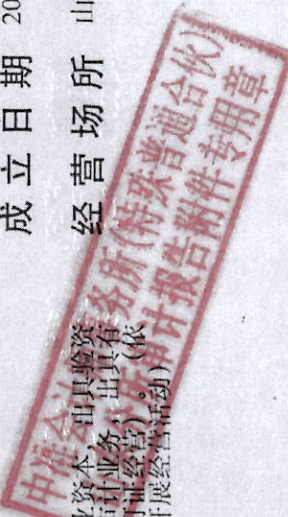 成立日期 20
经营场所 山
业资本，出具验资
审计业务，出具有
可证经营）。（依
开展经营活动）
务所(特殊普通合伙)
审计报告附件专用章